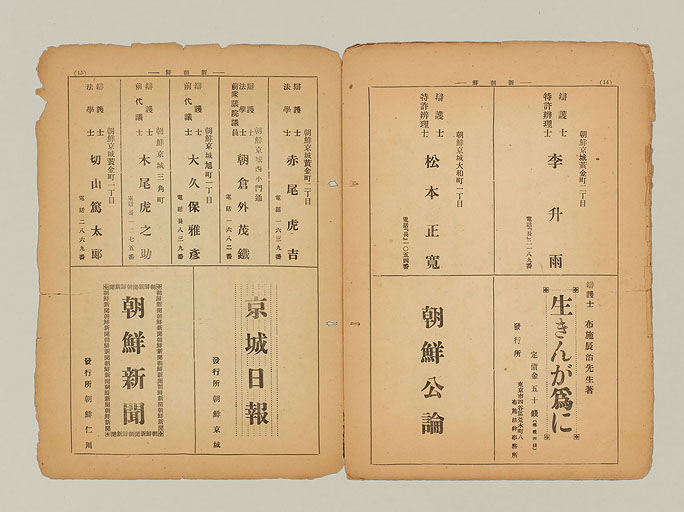 (14)
新朝鮮
朝鮮京城黃金町二丁目
辯護士
特許辨理士
李升雨
電話「長」二一八九番
朝鮮京城大和町一丁目
辯護士
特許辨理士
松本正寬
電話「長」一〇五四番
辯護士 布施辰治先生著
生きんが爲に
定價金五十錢
發行所
東京市四谷區荒木町八
布施法律事務所
朝鮮公論
新朝鮮
(15)
朝鮮京城黃金町二丁目
辯護士
法學士
赤尾虎吉
電話一六三九番
朝鮮京城西小門通
辯護士
法學士
前衆議院議員
朝倉外茂鐵
電話一六八二番
朝鮮京城旭町二丁目
辯護士
前代議士
大久保雅彥
電話長八三九番
朝鮮京城三角町
辯護士
前代議士
木尾虎之助
電話長一二七五番
朝鮮京城黃金町一丁目
辯護士
法學士
切山篤太郎
電話二八六九番
京城日報
發行所 朝鮮京城
朝鮮新聞
發行所 朝鮮仁川